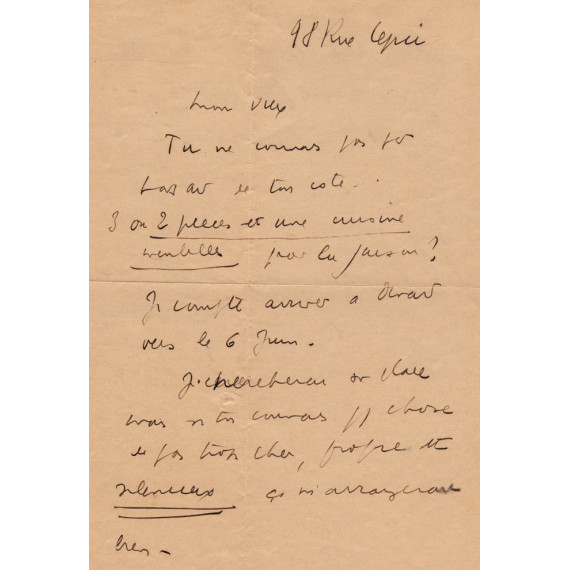 98 Rue Lepic
Mon vieux
Tu ne connais pas par
hasard de ton coté..
3 ou 2 pieces et une cuisine
meublées pour la saison?
Je compte arriver a Dinard
vers le 6 Juin.
Je chercherai sur place
mais si tu connais qq chose
de pas trop cher, propre et
silencieux ça m'arrangerait
bien -